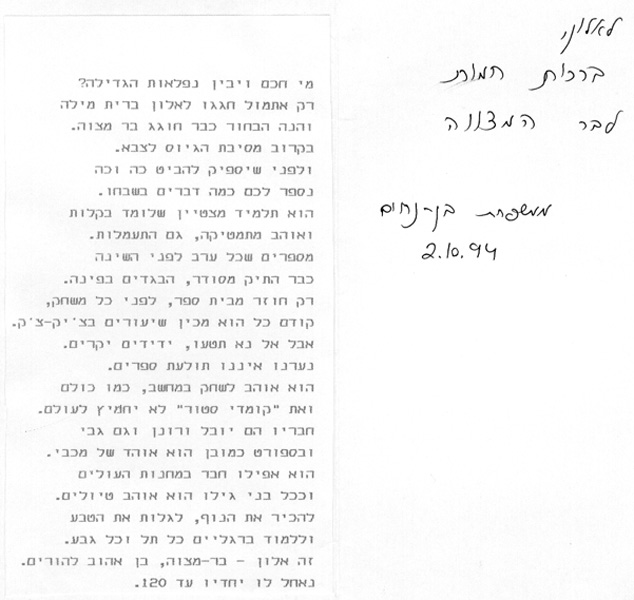 מי חכם ויבין נפלאות הגדילה?
רק אתמול חגגו לאלון ברית מילה
והנה הבחור כבר חוגג בר מצוה.
בקרוב מסיבת הגיוס לצבא.
ולפני שיספיק להביט כה וכה
נספר לכם כמה דברים בשבחו.
הוא תלמיד מצטיין שלומד בקלות
ואוהב מתמטיקה, גם התעמלות.
מספרים שכל ערב לפני השינה
כבר התיק מסודר, הבגדים בפינה.
רק חוזר מבית ספר, לפני כל משחק,
קודם כל הוא מכין שיעורים בצ'יק-צ'ק.
אבל אל נא תטעו, ידידים יקרים.
נערנו איננו תולעת ספרים.
הוא אוהב לשחק במחשב, כמו כולם
ואת "קומדי סטור" לא יחמיץ לעולם.
חבריו הם יובל ורונן וגם גבי
ובספורט כמובן הוא אוהד של מכבי.
הוא אפילו חבר במחנות העולים
וככל בני גילו הוא אוהב טיולים.
להכיר את הנוף, לגלות את הטבע
וללמוד ברגליים כל תל וכל גבע.
זה אלון - בר-מצוה, בן אהוב להורים.
נאחל לו יחדיו עד 120.
לאלוני
ברכות חמות
לבר המצווה
ממשפחת בן-נחום
2.10.94